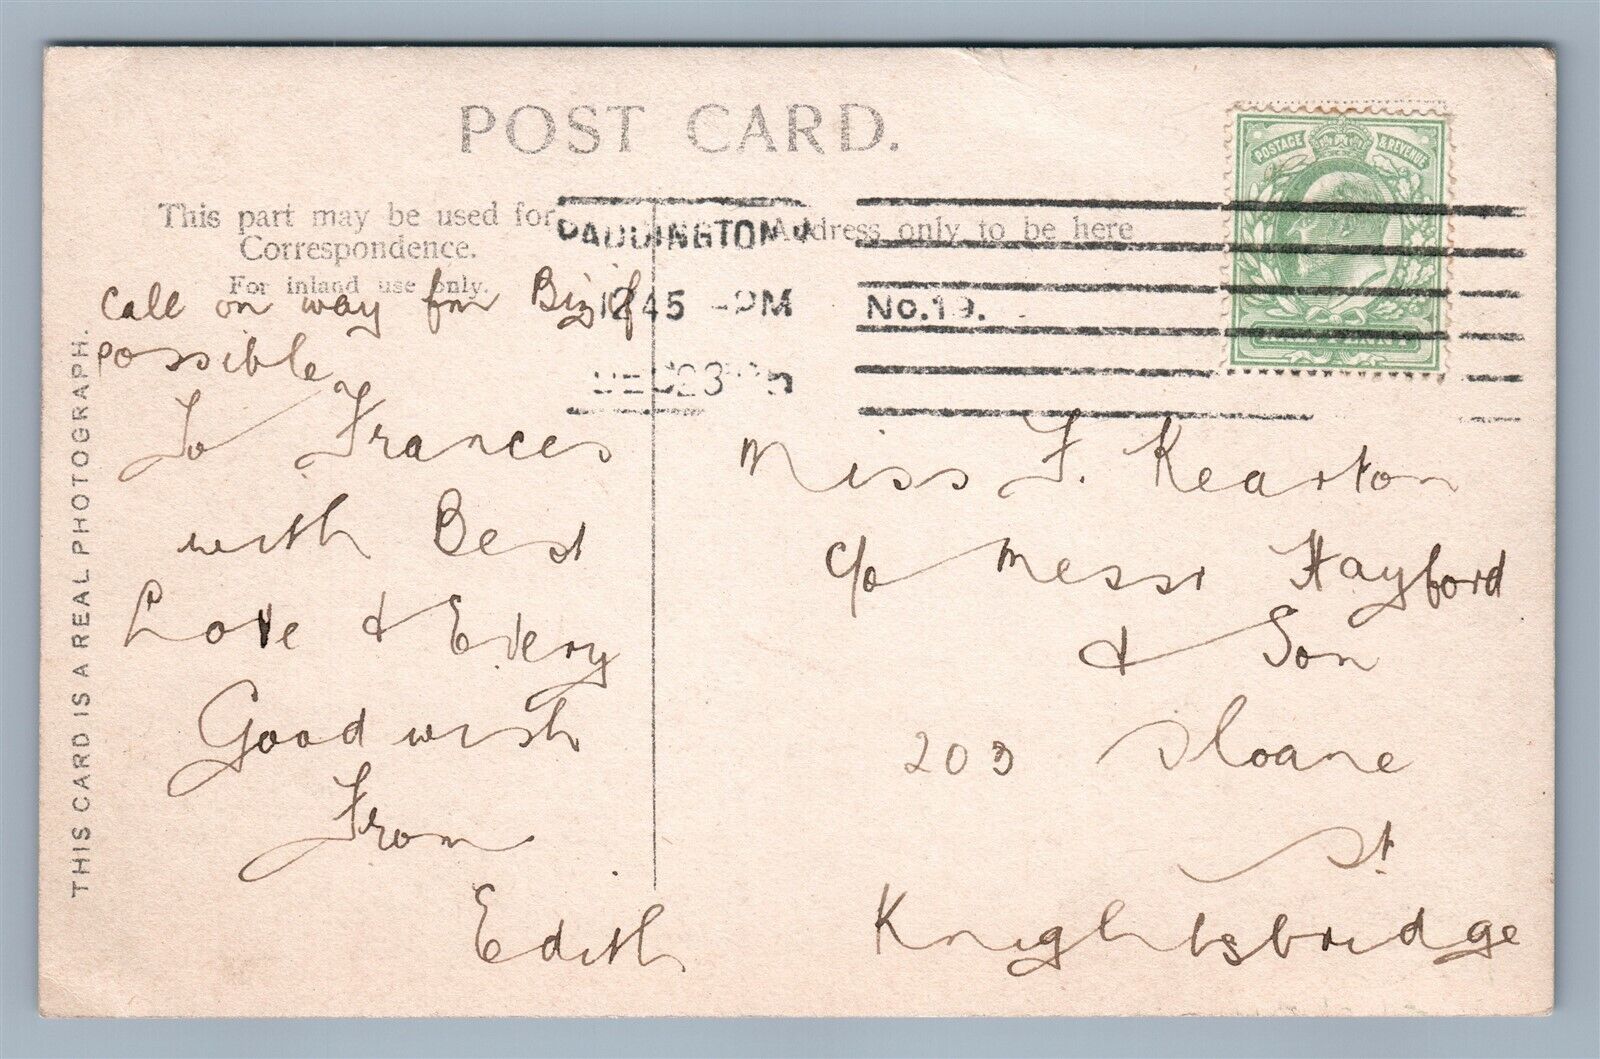 POST CARD.
This part may be used for
Correspondence.
For inland use only.
Address only to be here
THIS CARD IS A REAL PHOTOGRAPH.
POSTAGE & REVENUE
PADDINGTON W
1245 PM
No. 19.
DEC 23
call on way fm Biz if
possible
To Frances
with Best
Love & Every
Good wish
From
Edith
Miss F. Kearton
c/o Messr Hayford
& Son
203 Sloane
St
Knightsbridge